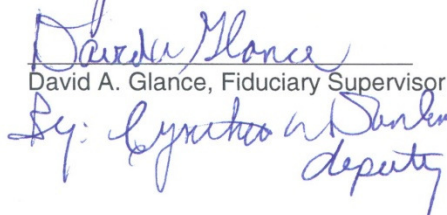 David A Glance
David A. Glance, Fiduciary Supervisor
By: Cynthia
deputy